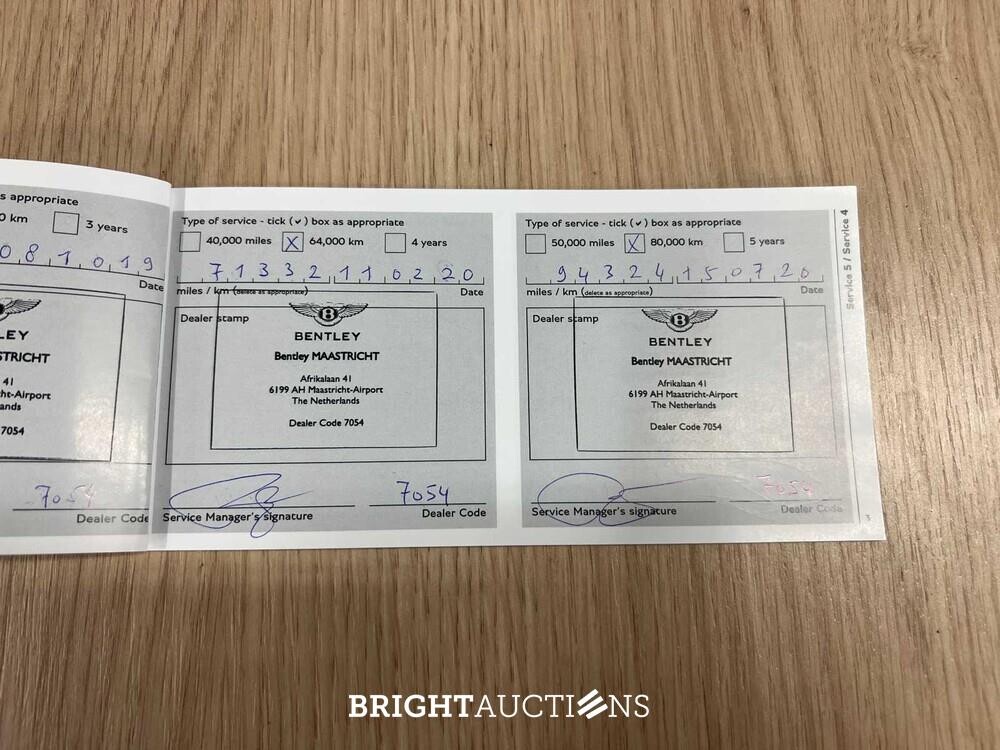 s appropriate
0 km 3 years
081019
Date
LEY
STRICHT
41
ht-Airport
ands
7054
7054
Dealer Code
Type of service - tick (✓) box as appropriate
40,000 miles X 64,000 km 4 years
71332 110220
miles / km (delete as appropriate) Date
Dealer stamp
B
BENTLEY
Bentley MAASTRICHT
Afrikalaan 41
6199 AH Maastricht-Airport
The Netherlands
Dealer Code 7054
7054
Service Manager's signature Dealer Code
Type of service - tick (✓) box as appropriate
50,000 miles X 80,000 km 5 years
94324 150720
miles / km (delete as appropriate) Date
Dealer stamp
B
BENTLEY
Bentley MAASTRICHT
Afrikalaan 41
6199 AH Maastricht-Airport
The Netherlands
Dealer Code 7054
7054
Service Manager's signature Dealer Code
Service 5 / Service 4
3
BRIGHTAUCTIONS